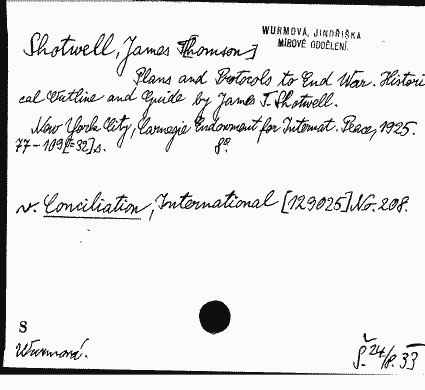 WURMOVÁ, JINDŘIŠKA
MÍROVÉ ODDĚLENÍ.
Shotwell, James T[homson]
Plans and Protocols to End War. Histori
cal Outline and Guide by James T. Shotwell.
New York City, Carnegie Endowment for Internat. Peace, 1925.
77-109[=32]s. 8°.
v. Conciliation, International [129025] No. 208.
S
Wurmová.
Š. 24/8. 33